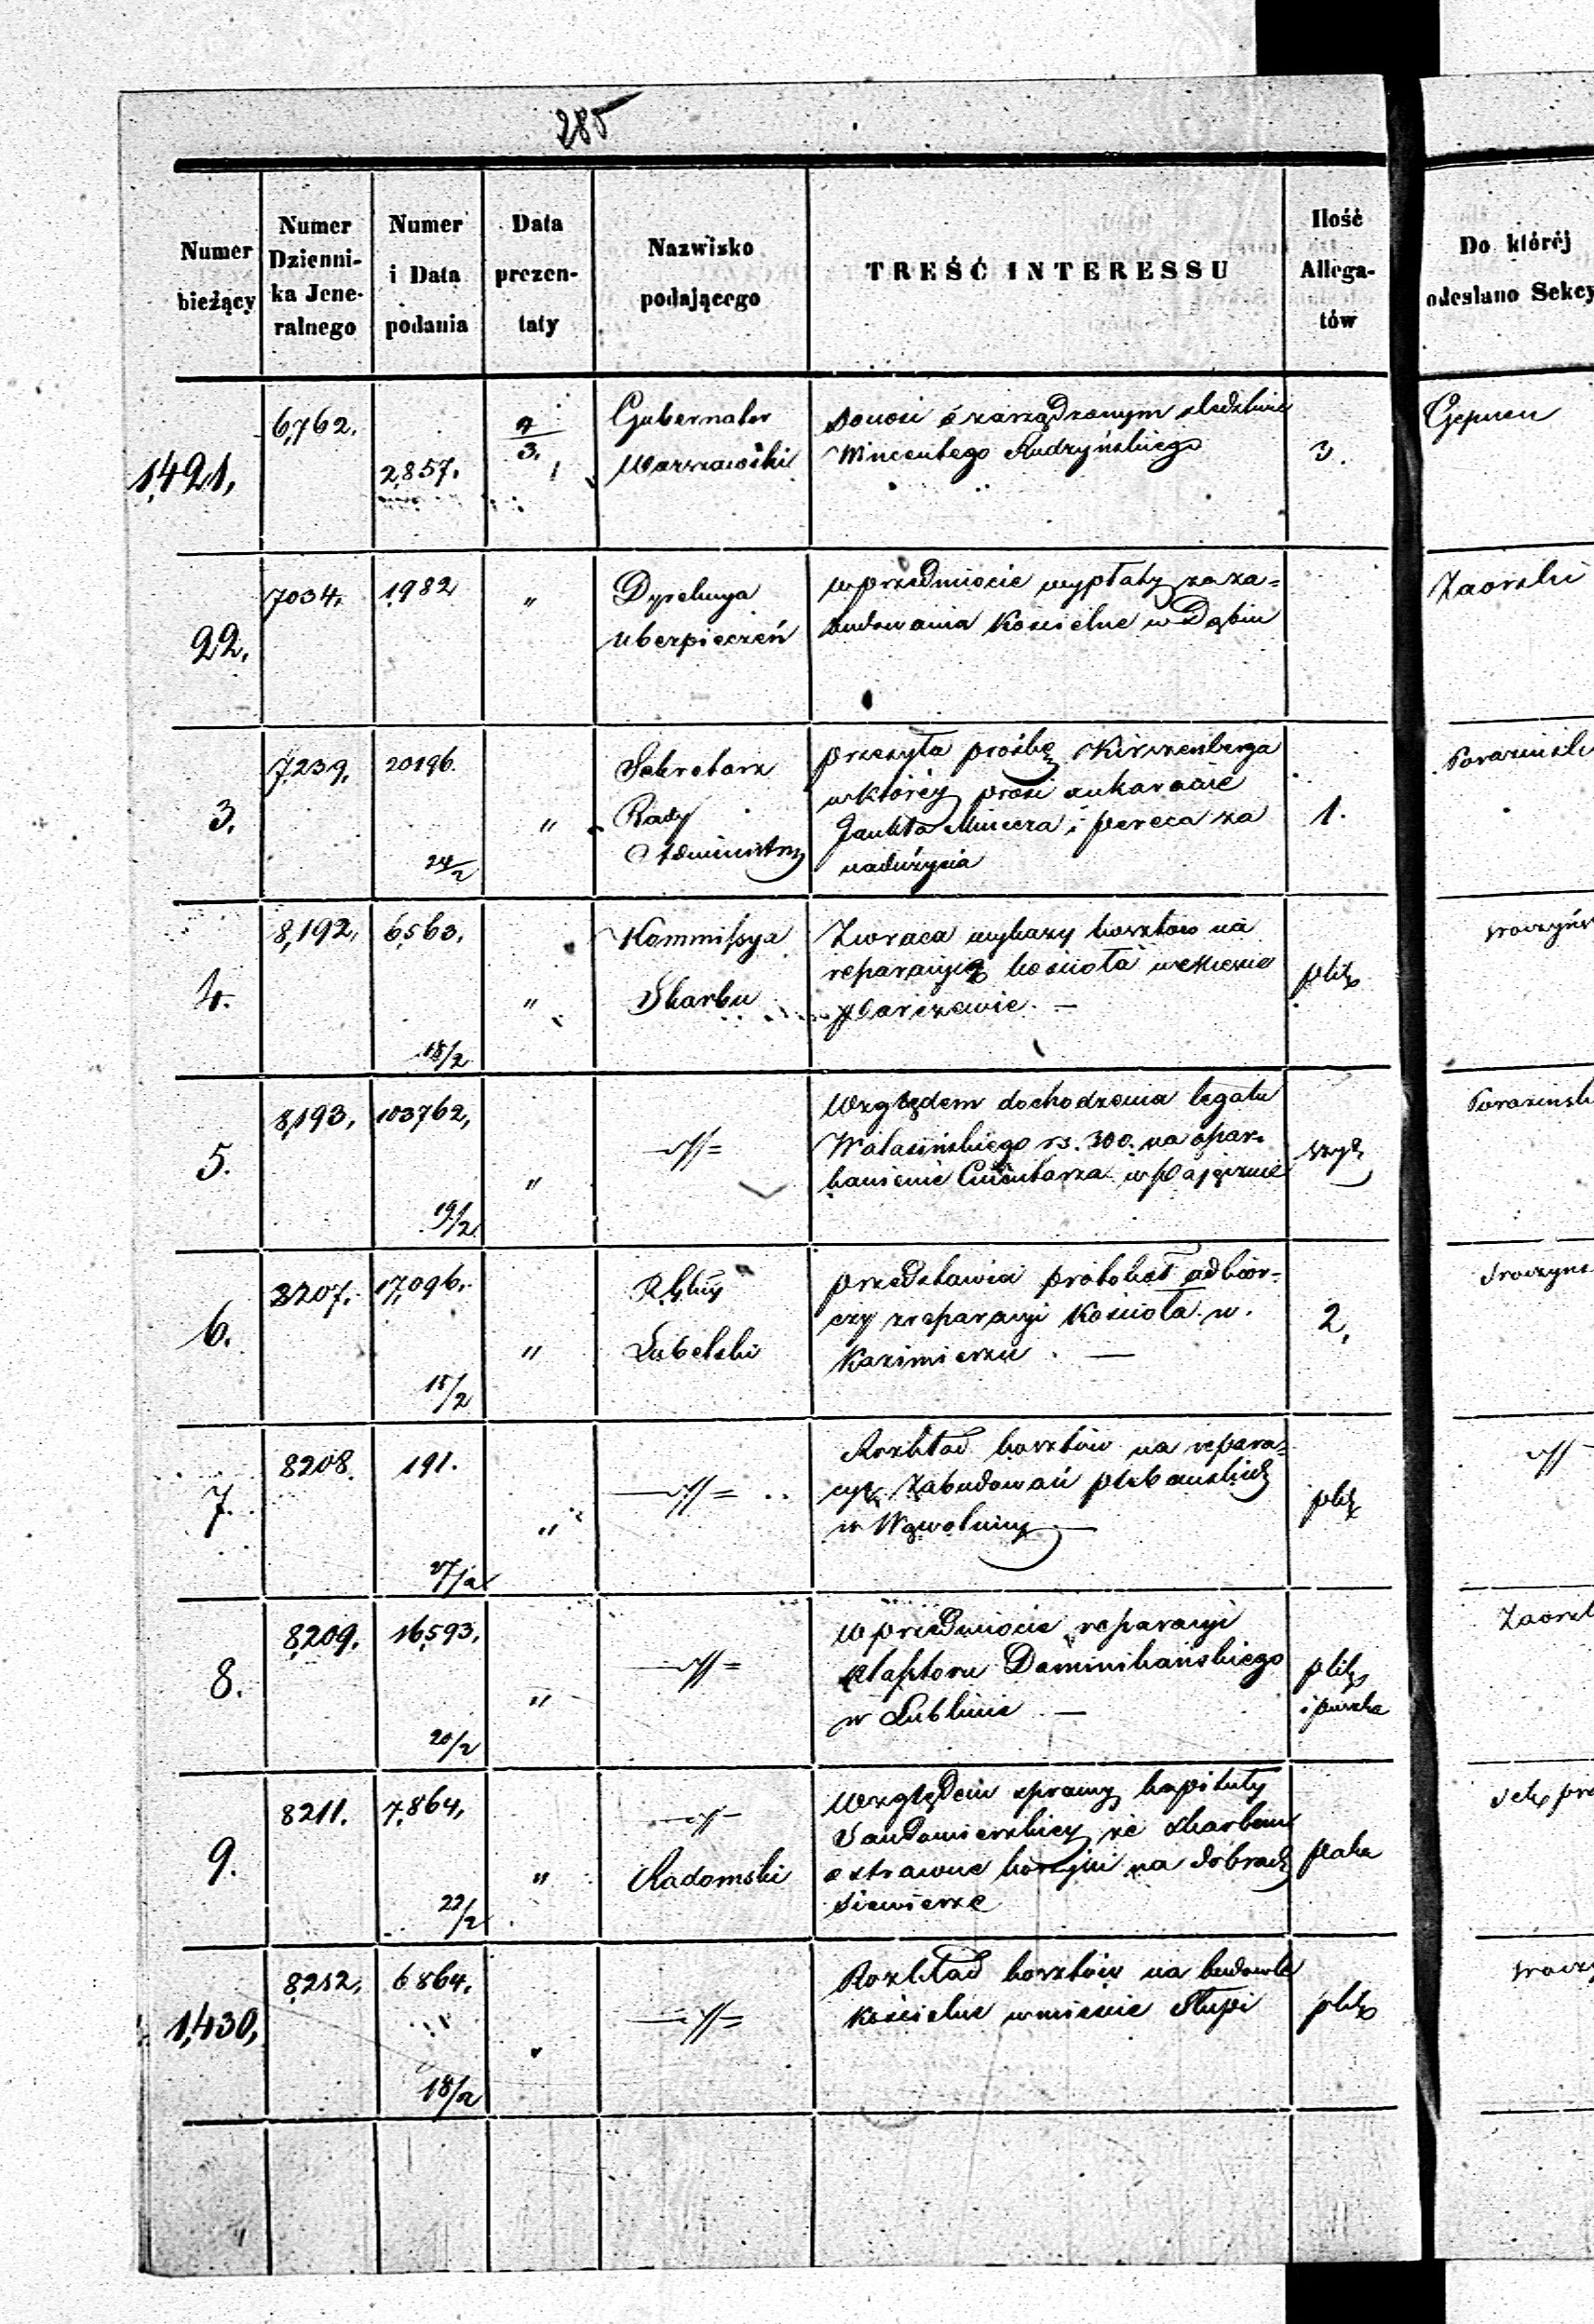 285
Numer bieżący
Numer Dzienni-ka Jene-ralnego
Numer i Data podania
Data prezen-taty
Nazwisko podającego
TREŚĆ INTERESSU
Ilość Allega-tów
Do któréj odesłano Sekcy
1,421,
6,762.
2,857.
4/3.
Gubernator
Warszawski
donosi o zarządzonym śledztwie
Wincentego Rudzyńskiego
3.
22.
7034.
1982
"
Dyrekcya
Ubezpieczeń
w przedmiocie wypłaty za za=
budowania Kościelne w Dąbiu
Zaorski
3.
7,239,
20196.
24/2
"
Sekretarz
Rady
Administry
przesyła prośbę Kirszenberga
w którey prosi o ukaranie
Jankla Mincera i pereca za
nadużycia
1.
4.
8,192,
6,563.
18/2
"
Kommissya
Skarbu
Zwraca wykazy kosztów na
reparacyą kościoła w
plik
5.
8,193,
103762,
19/2
"
Względem dochodzenia legatu
Walasińskiego rs. 300. na opar-
kanienie Cmentarza w Pajęcznie
6.
8207.
17,096.
15/2
"
Lubelski
przedstawia protokół odbior-
czy z reparacyi Kościoła w.
Kazimierzu. —
2,
7.
8208.
191.
27/2
"
Rozkład kosztów na repara-
cyę Zabudowań plebańskich
w Wąwolnicy —
plik
8.
8,209.
16,593.
20/2
"
w przedmiocie reparacyi
klasztoru Dominikańskiego
w Lublinie —
plik
i paczka
9.
8211.
7,864,
22/2
"
Radomski
Względem sprawy kapituły
Sandomierskiej ze skarbem
na dobrach
Siewierze
paka
1,430,
8,212,
6864.
18/2
"
Rozkład kosztów na budowle
Kościelne w mieście Słupi
plik